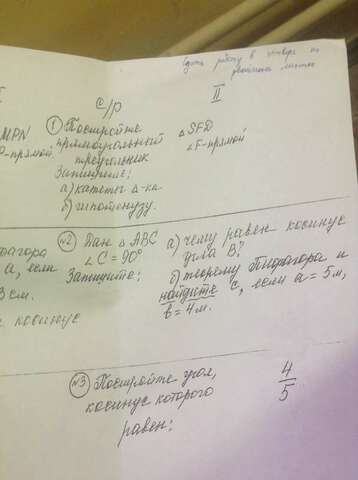 Сдать работу в январе на
двойном листке
I
с/р
II
MPN
Р-прямой
① Постройте
прямоугольный
треугольник
Запишите:
а) катеты △-ка
б) гипотенузу.
△SFD
∠F-прямой
фагора
а, если
3 см.
косинус
№2 Дан △ABC
∠C = 90°
Запишите:
а) чему равен косинус
угла В?
б) теорему Пифагора и
найдите с, если a = 5 м,
b = 4 м.
№3 Постройте угол,
косинус которого
равен:
4
5